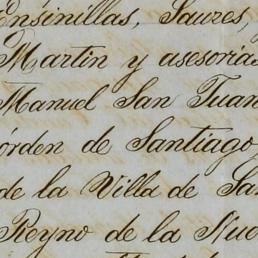 Ensinillas, Saures,
Martin y asesorias
Manuel San Juan
órden de Santiago,
de la Villa de Sa
Reyno de la Nue